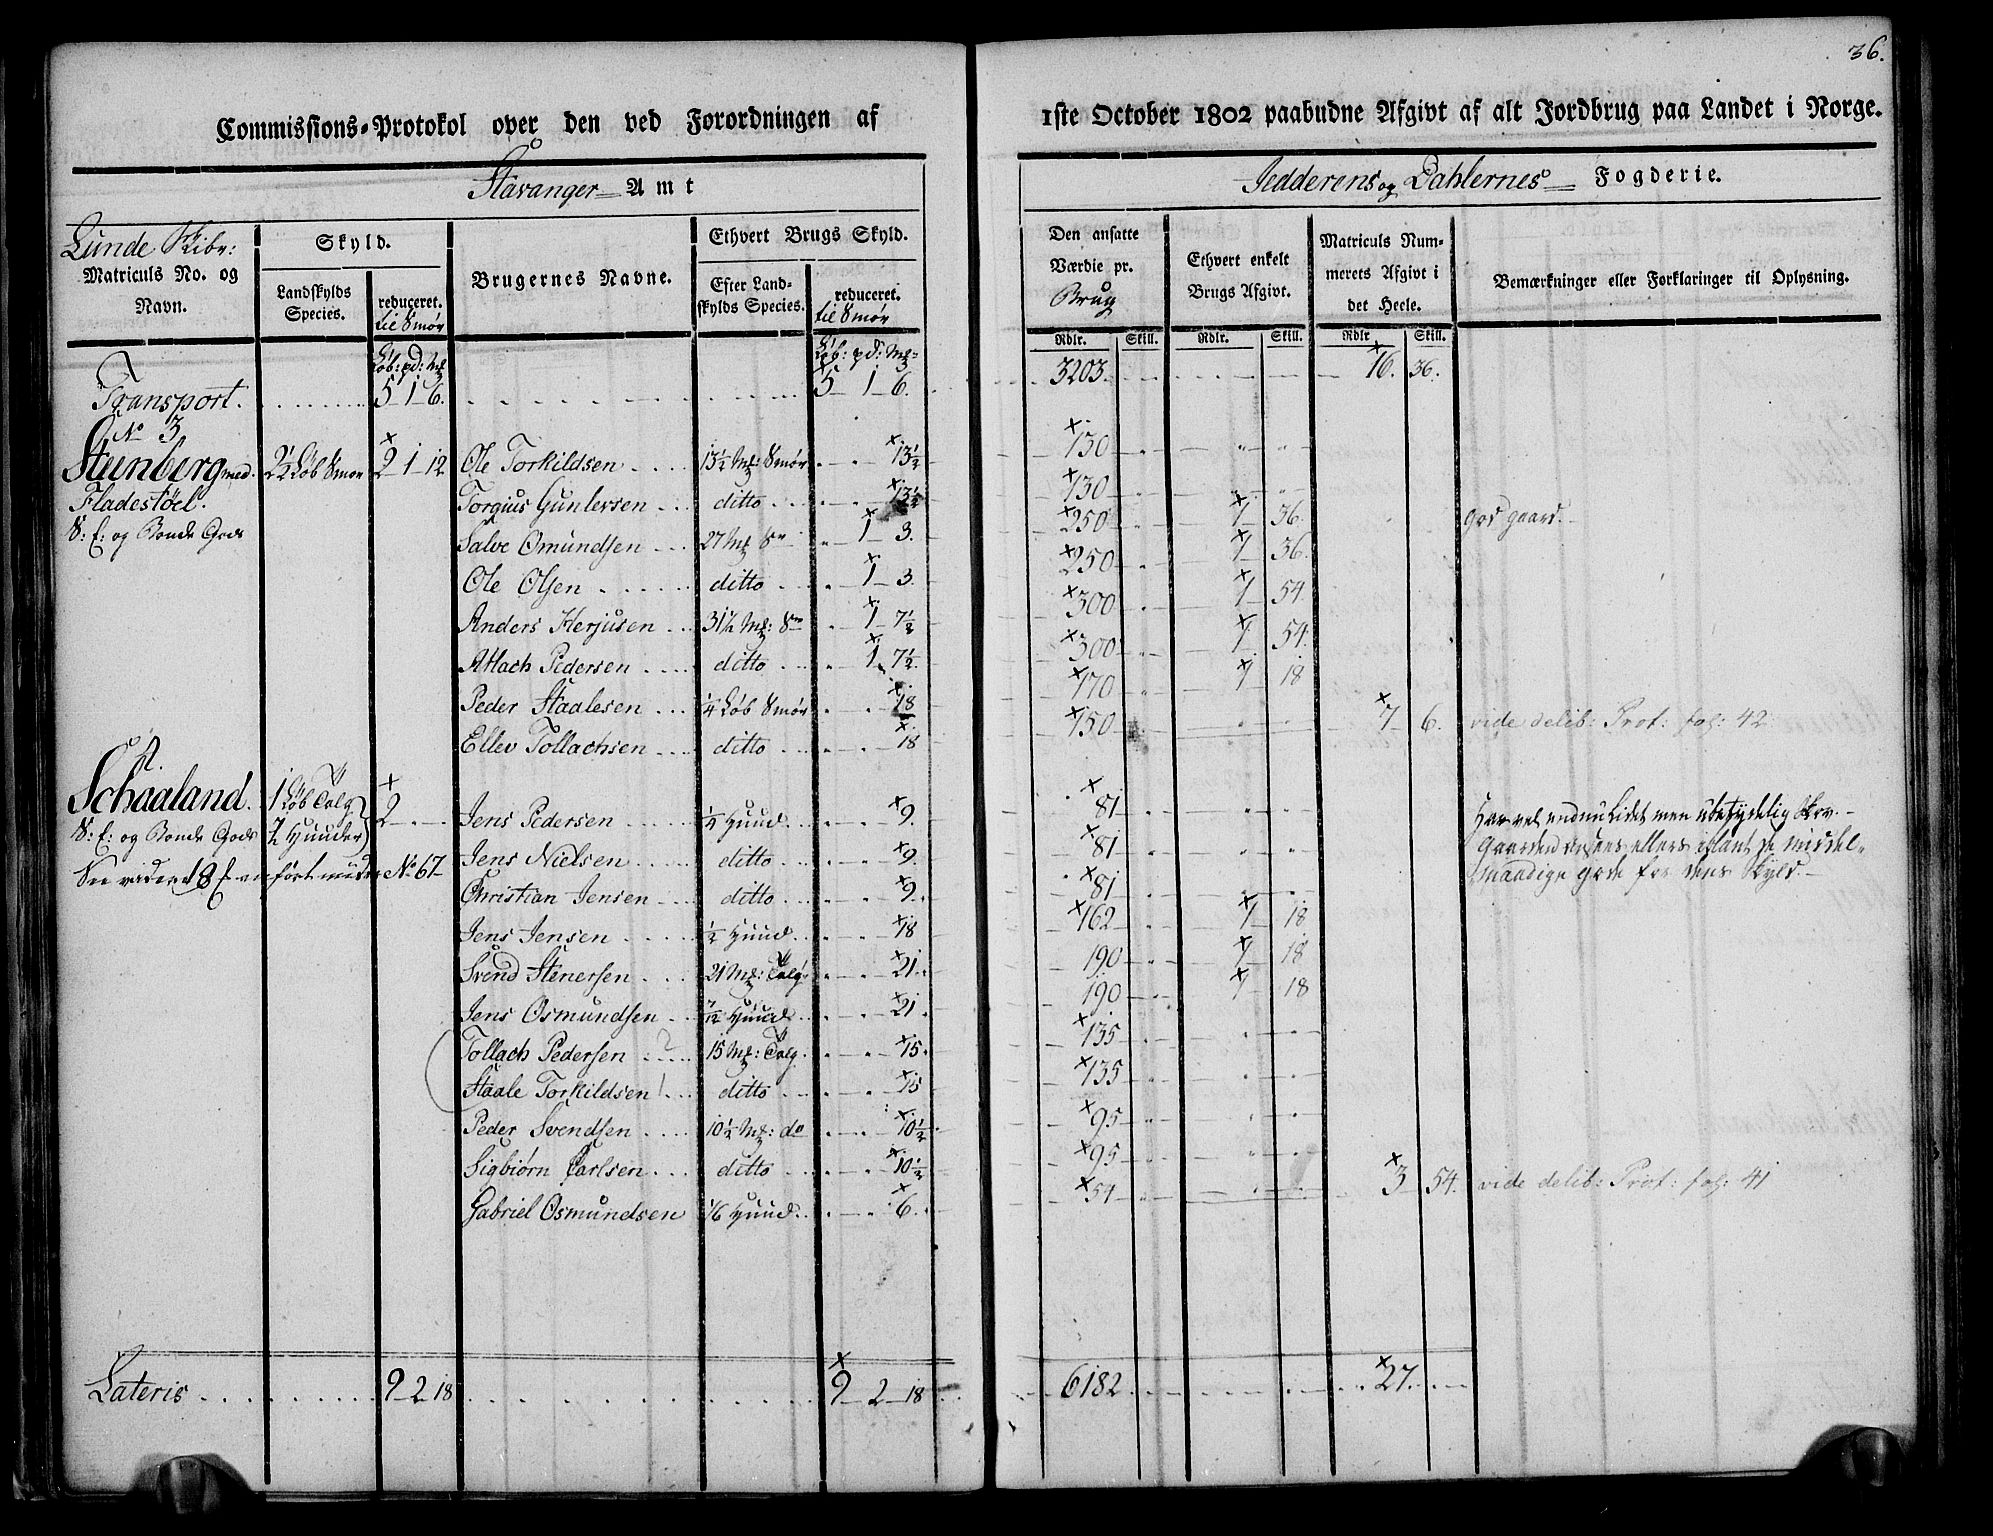 36.
Commissions-Protokol over den ved Forordningen af 1ste October 1802 paabudne Afgivt af alt Jordbrug paa Landet i Norge.
Stavanger Amt Jedderens og Dahlernes Fogderie.
Lunde Skibr:
Matriculs No. og Navn.
Skyld.
Landskylds Species.
reduceret. til Smör
Brugernes Navne.
Ethvert Brugs Skyld.
Efter Landskylds Species.
reduceret. til Smör
Den ansatte Værdie pr. Brug
Ethvert enkelt Brugs Afgivt.
Matriculs Nummerets Afgivt i det Heele.
Bemærkninger eller Forklaringer til Oplysning.
Löb: pd: Mk Löb: pd: Mk Rdlr. Skill. Rdlr. Skill. Rdlr Skill.
Transport. 5 1 6. 5 1 6. 3203 16. 36.
No 3
Steenberg med 2½ Löb Smör 2 1 12 Ole Torkildsen 13½ Mk: Smör 13½ 130
Fladestöel. Torgius Gunlevsen ditto 13½ 130
S: E: og Bonde Gods Salve Omundsen 27 Mk Sm 1 3. 250 1 36. god gaard.
Ole Olsen ditto 1 3. 250 1 36.
Anders Herjusen 31½ Mk: Sm 1 7½ 300 1 54.
Atlach Pedersen ditto 1 7½ 300 1 54.
Peder Staalesen ¼ Löb Smör 18 170 1 18
Ellev Tollachsen ditto 18 150 7 6. vide delib: Prot: fol: 42
4.
Schaaland. 1 Löb Talg 2 Jens Pedersen ¼ Huud 9. 81 Har vel endnu Lidet men ubetydelig Skov.
S: E: og Bonde Gods 2 Huuder Jens Nielsen ditto 9. 81
See videre 18 anfört under No 67 Christian Jensen ditto 9. 81
Jens Jensen ½ Huud 18 162 1 18
Svend Stenersen 21 Mk: Talg 21. 190 1 18
Jens Osmundsen 7/12 Huud 21 190 1 18
Tollach Pedersen ? 15 Mk: Talg 15. 135
Staale Torkildsen ditto 15 135
Peder Svendsen 10½ Mk: do 10½ 95
Sigbiörn Carlsen ditto 10½ 95
Gabriel Osmundsen 1/6 Huud 6. 54 3 54. vide delib: Prot: fol: 41
Lateris 9 2 18 9 2 18 6182 27.